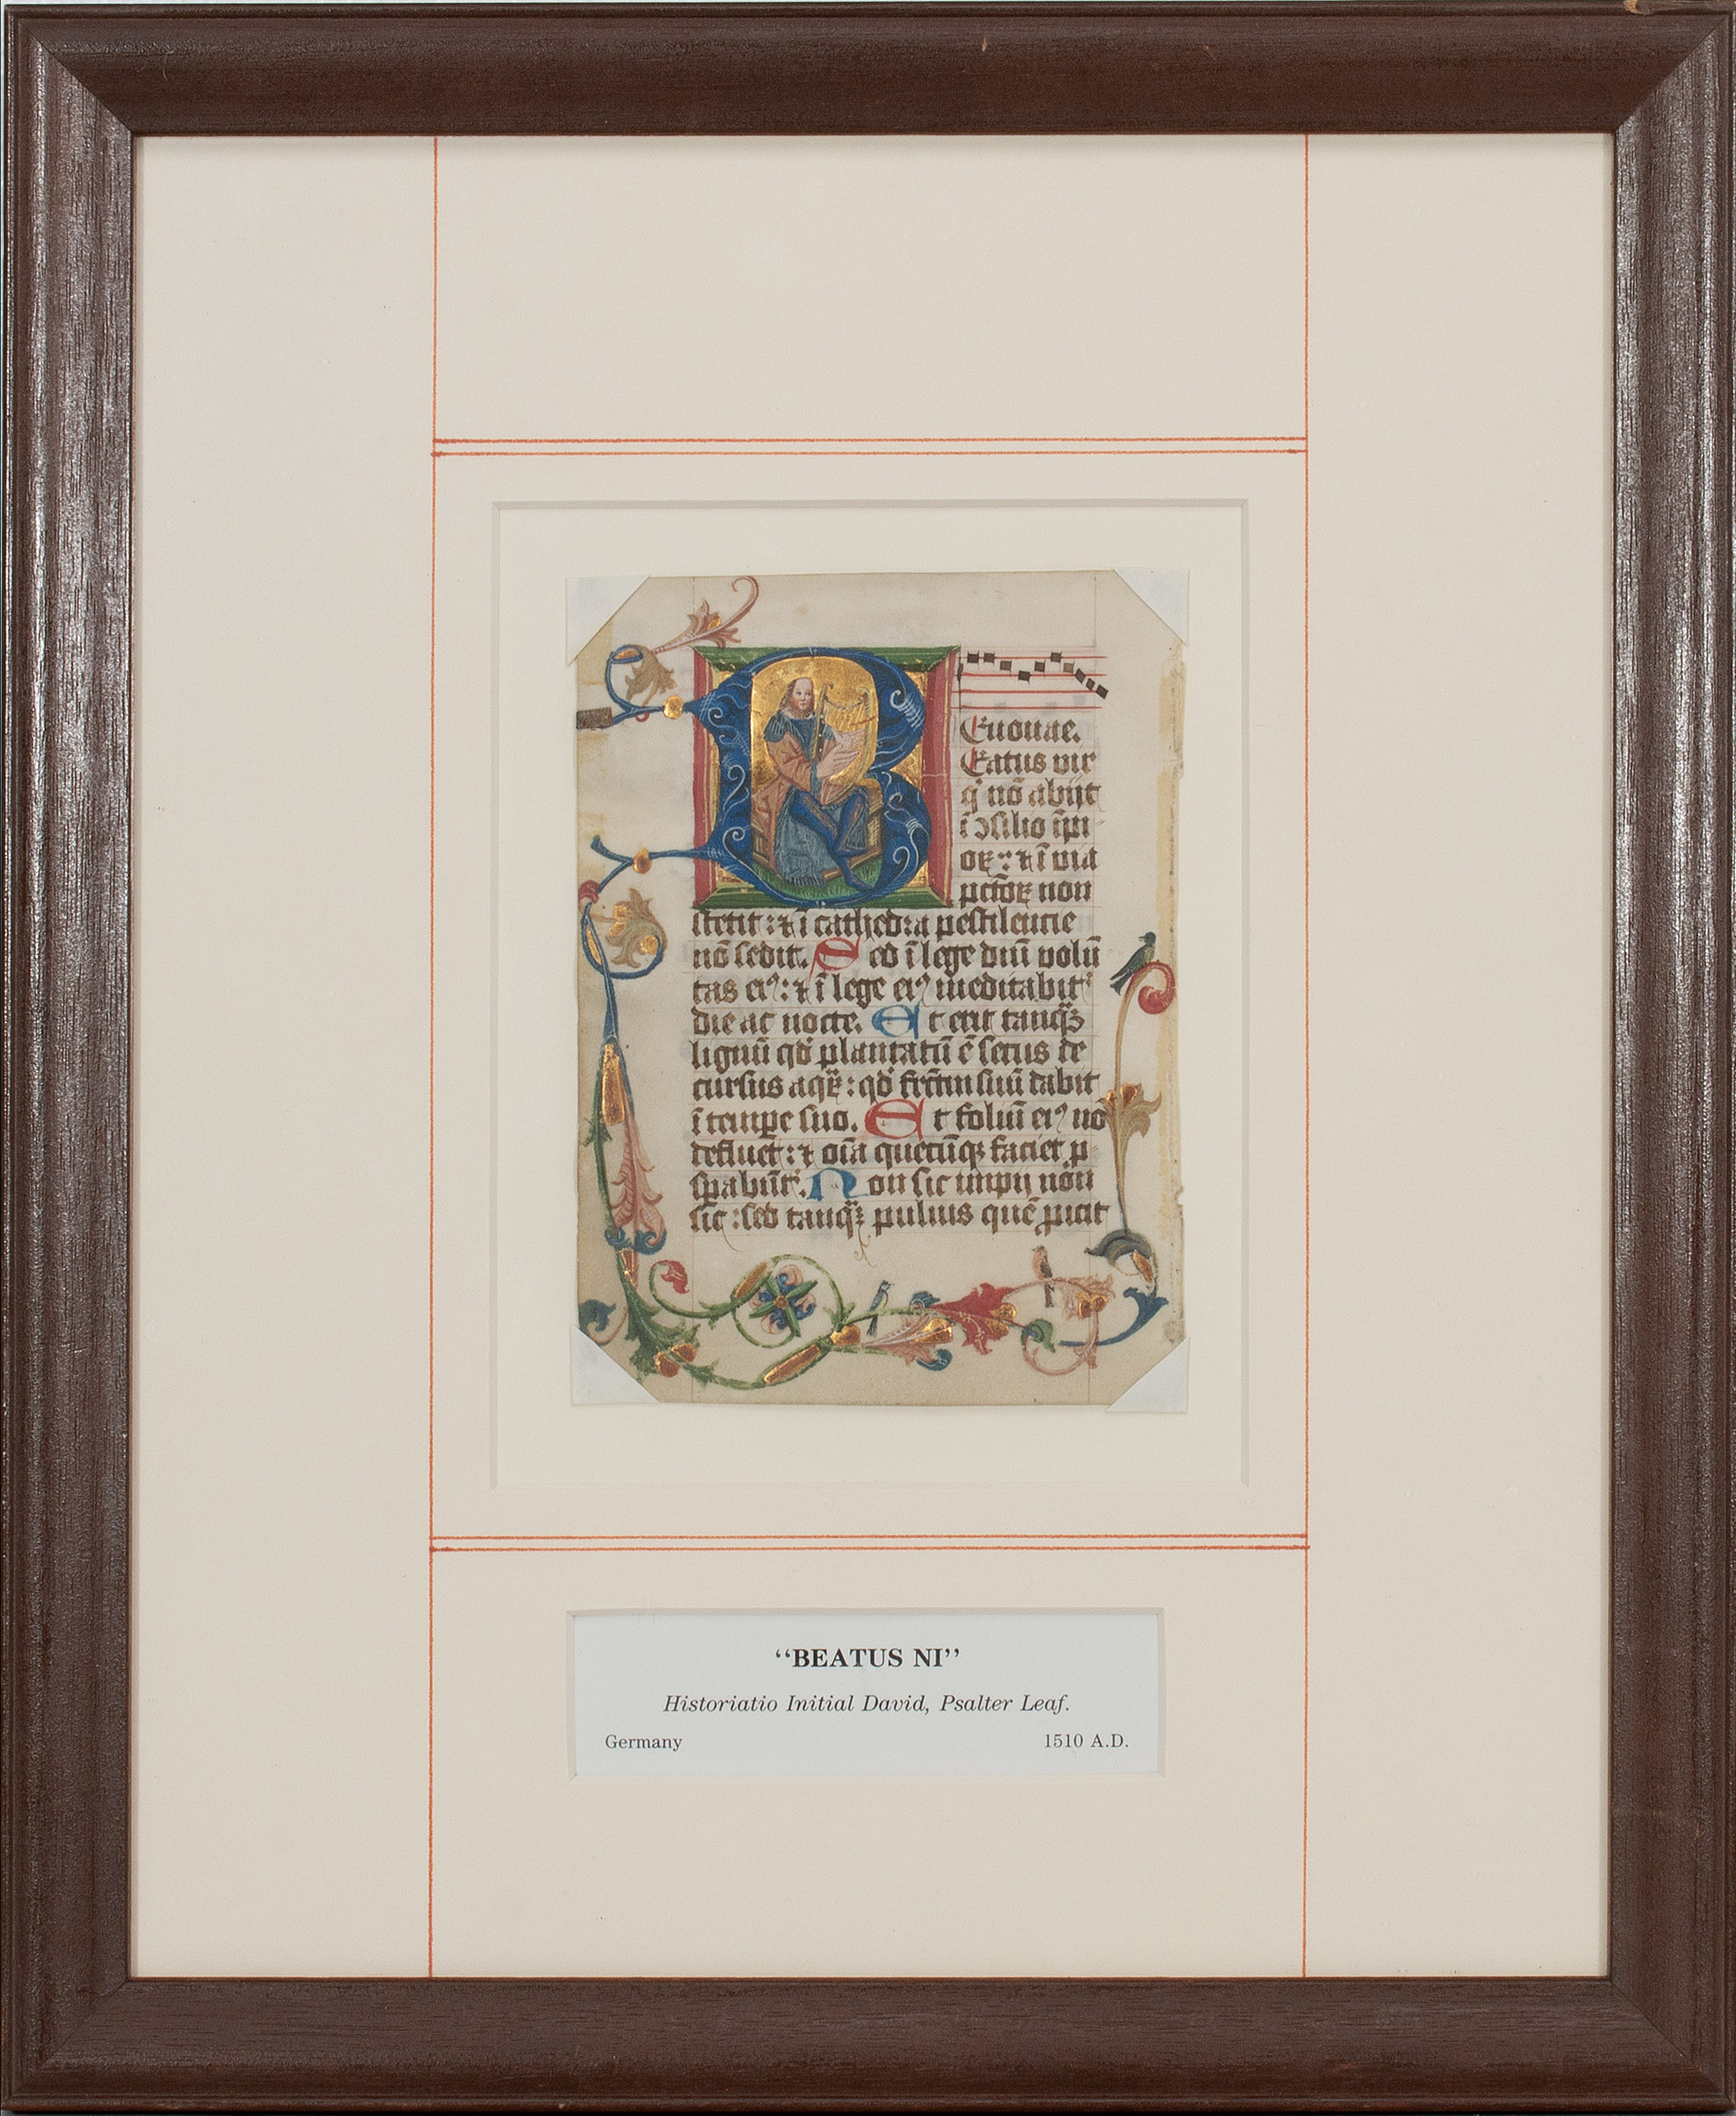 B
Euouae.
Eatus vir
q̇ nō abijt
ī ɔsilio īpi
oꝝ: ⁊ ī via
pctōꝝ non
stetit: ⁊ ī cathedra pestilentie
nō sedit. Sed ī lege dn̄i volū
tas eiꝰ: ⁊ ī lege eiꝰ meditabit᷑
die ac nocte. Et erit tanqᷓꝫ
lignū qd̓ plantatū ē secus de
cursus aqᷓꝝ: qd̓ fructm̄ suū dabit
ī tempe suo. Et foliū eiꝰ nō
defluet: ⁊ oīa quecūqꝫ faciet p
spabūt᷑. Non sic impij non
sic: sed tanqᷓꝫ puluis quē ꝓicit
“BEATUS NI”
Historiatio Initial David, Psalter Leaf.
Germany 1510 A.D.